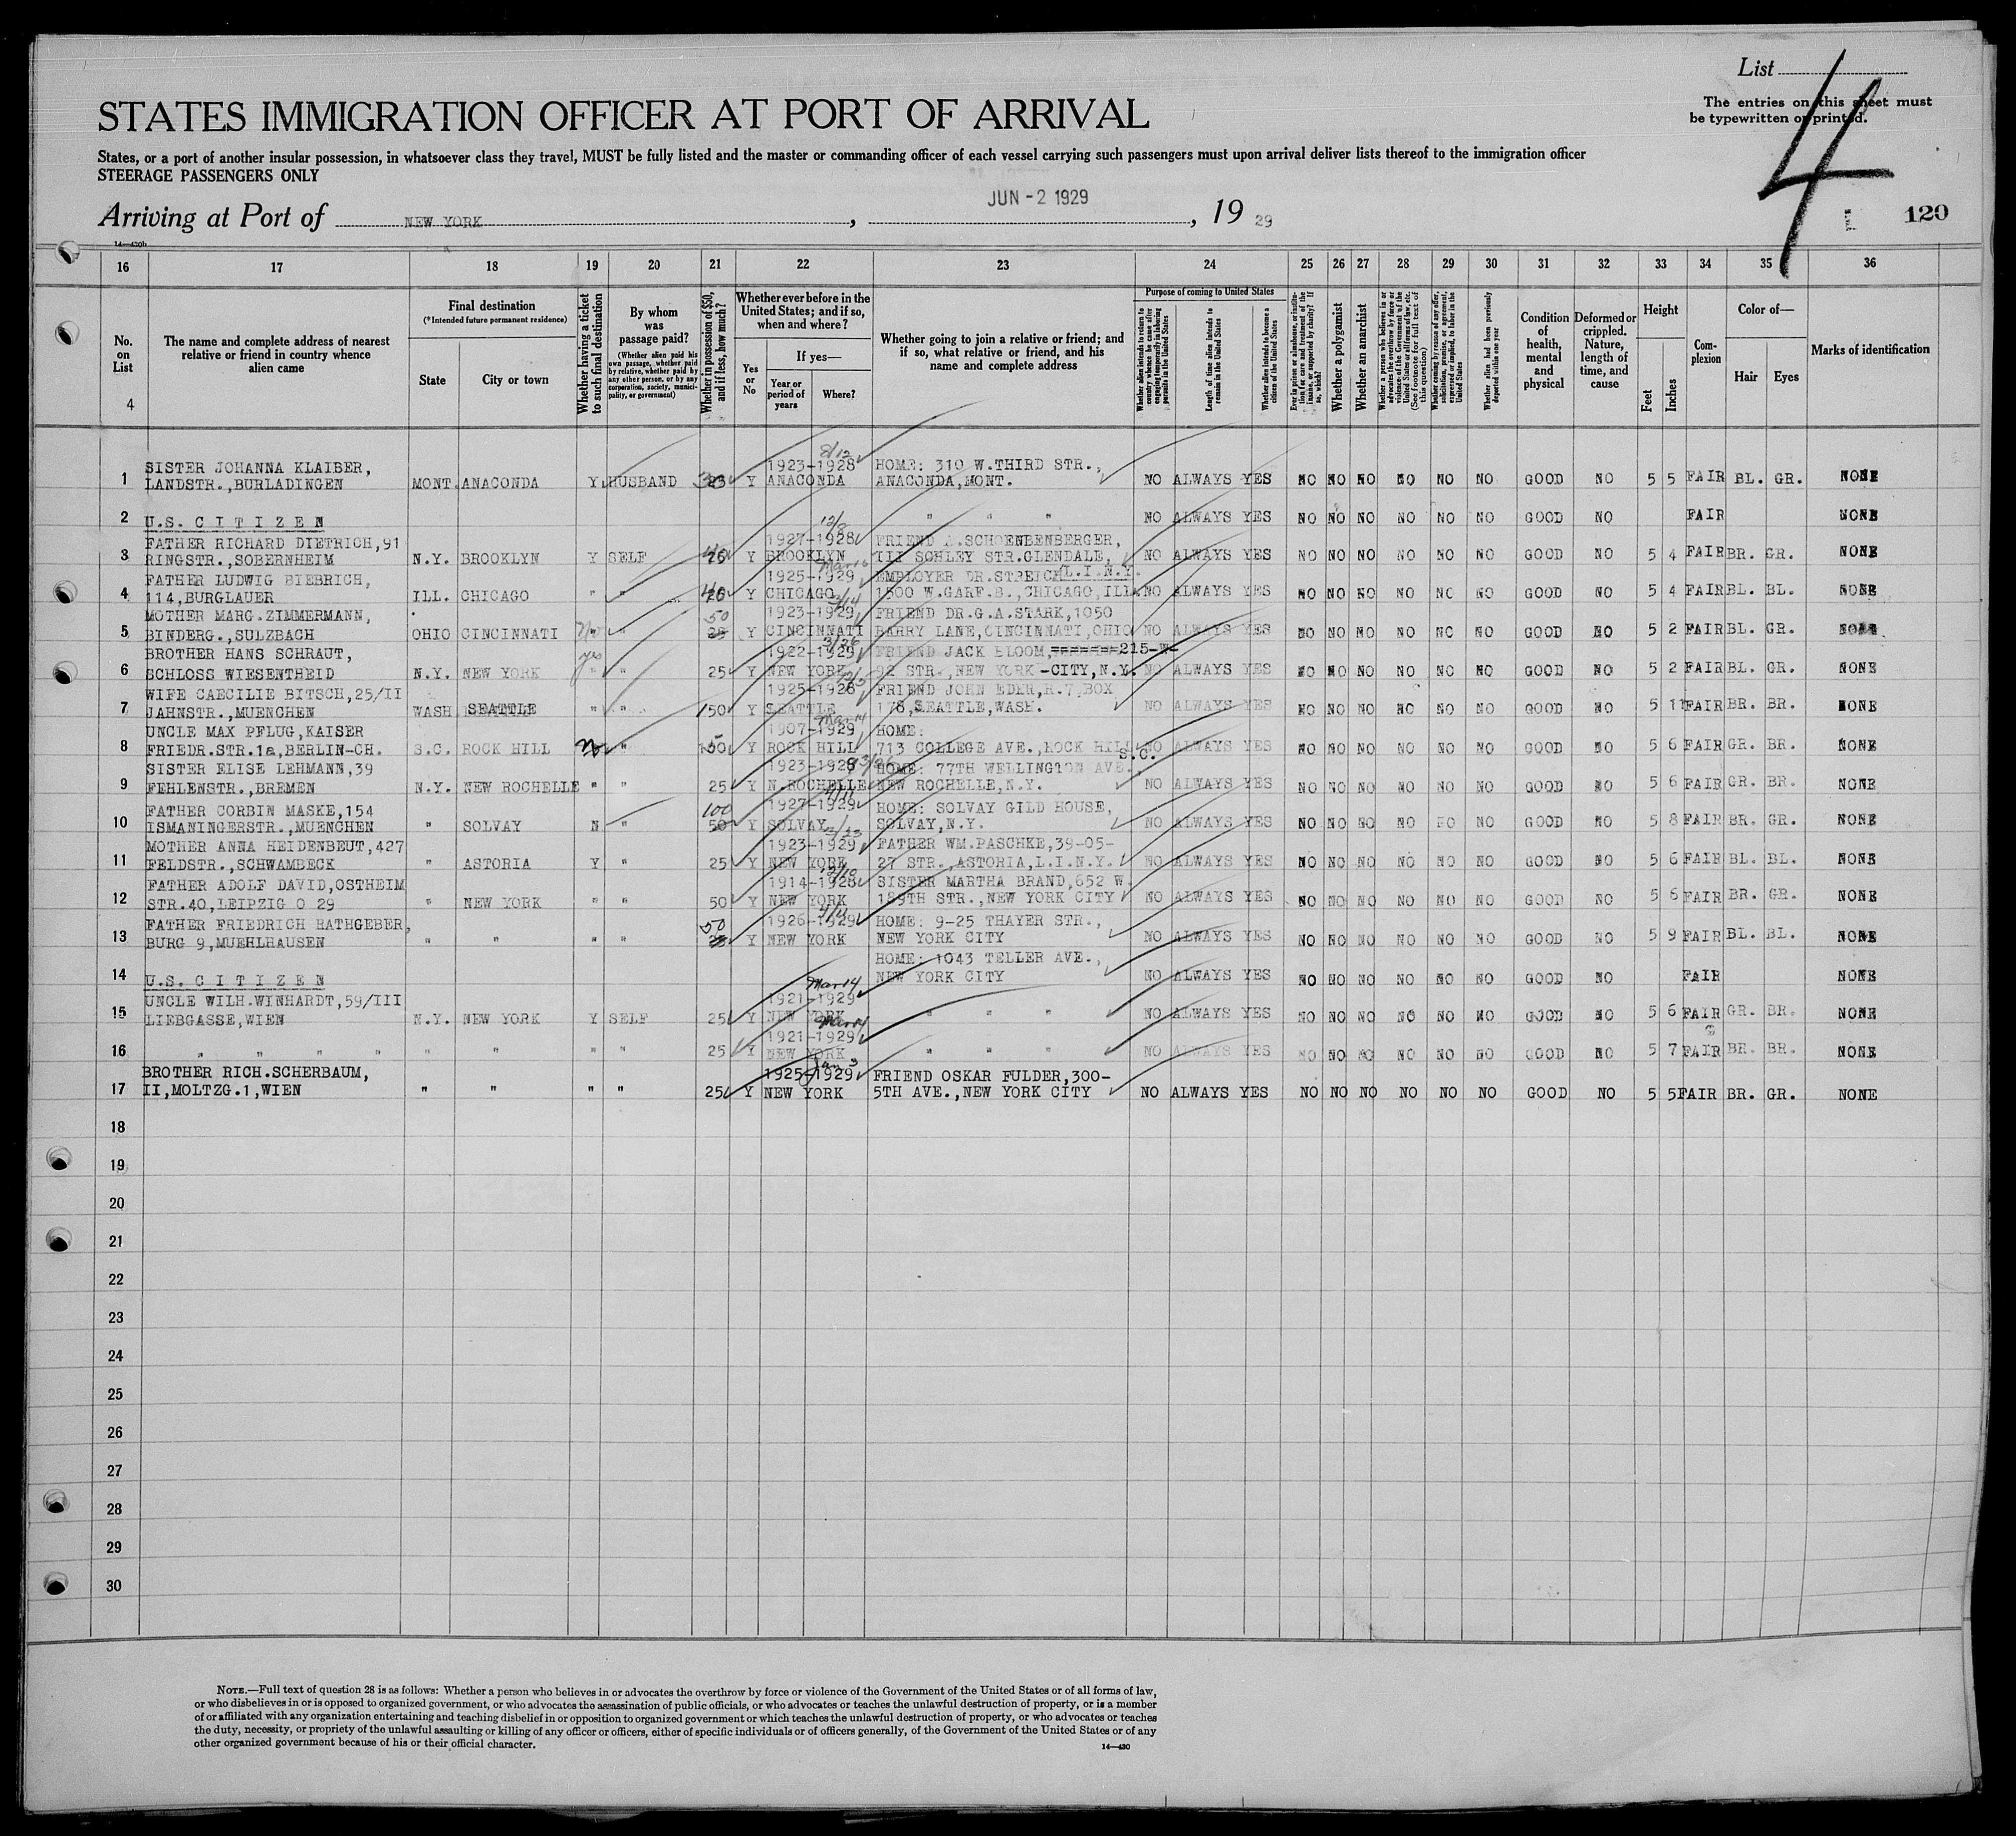 List
The entries on this sheet must
be typewritten or printed.
4
STATES IMMIGRATION OFFICER AT PORT OF ARRIVAL
States, or a port of another insular possession, in whatsoever class they travel, MUST be fully listed and the master or commanding officer of each vessel carrying such passengers must upon arrival deliver lists thereof to the immigration officer
STEERAGE PASSENGERS ONLY
Arriving at Port of NEW YORK, JUN - 2 1929, 19 29
120
14—430b
16 17 18 19 20 21 22 23 24 25 26 27 28 29 30 31 32 33 34 35 36
No. on List
4
The name and complete address of nearest relative or friend in country whence alien came
Final destination
(*Intended future permanent residence)
State
City or town
Whether having a ticket to such final destination
By whom was passage paid?
(Whether alien paid his own passage, whether paid by relative, whether paid by any other person, or by any corporation, society, municipality, or government)
Whether in possession of $50, and if less, how much?
Whether ever before in the United States; and if so, when and where?
Yes or No
If yes—
Year or period of years
Where?
Whether going to join a relative or friend; and if so, what relative or friend, and his name and complete address
Purpose of coming to United States
Whether alien intends to return to country whence he came after engaging temporarily in laboring pursuits in the United States
Length of time alien intends to remain in the United States
Whether alien intends to become a citizen of the United States
Ever in prison or almshouse, or institution for care and treatment of the insane, or supported by charity? If so, which?
Whether a polygamist
Whether an anarchist
Whether a person who believes in or advocates the overthrow by force or violence of the Government of the United States or all forms of law, etc. (See footnote for full text of this question)
Whether coming by reason of any offer, solicitation, promise, or agreement, expressed or implied, to labor in the United States
Whether alien had been previously deported within one year
Condition of health, mental and physical
Deformed or crippled. Nature, length of time, and cause
Height
Feet
Inches
Complexion
Color of—
Hair
Eyes
Marks of identification
8/12
SISTER JOHANNA KLAIBER, 1923-1928 HOME: 310 W.THIRD STR.,
1 LANDSTR.,BURLADINGEN MONT. ANACONDA Y HUSBAND Y ANACONDA ANACONDA,MONT. NO ALWAYS YES NO NO NO NO NO NO GOOD NO 5 5 FAIR BL. GR. NONE
2 U.S. C I T I Z E N " " " NO ALWAYS YES NO NO NO NO NO NO GOOD NO FAIR NONE
12/8
FATHER RICHARD DIETRICH,91 1927-1928 FRIEND A.SCHOENBENBERGER,
3 RINGSTR.,SOBERNHEIM N.Y. BROOKLYN Y SELF Y BROOKLYN III SCHLEY STR.GLENDALE, NO ALWAYS YES NO NO NO NO NO NO GOOD NO 5 4 FAIR BR. GR. NONE
L.I.N.Y.
FATHER LUDWIG BIEBRICH, 1925-1929 EMPLOYER DR.STREICH
4 114,BURGLAUER ILL. CHICAGO " " Y CHICAGO 1500 W.GARF.B.,CHICAGO,ILL. NO ALWAYS YES NO NO NO NO NO NO GOOD NO 5 4 FAIR BL. BL. NONE
MOTHER MARG.ZIMMERMANN, 50 1923-1929 FRIEND DR.G.A.STARK,1050
5 BINDERG.,SULZBACH OHIO CINCINNATI No " " 25 Y CINCINNATI BARRY LANE,CINCINNATI,OHIO NO ALWAYS YES NO NO NO NO NO NO GOOD NO 5 2 FAIR BL. GR. NONE
3/26
BROTHER HANS SCHRAUT, yes 1922-1929 FRIEND JACK BLOOM, 215-W-
6 SCHLOSS WIESENTHEID N.Y. NEW YORK " " 25 Y NEW YORK 92 STR.,NEW YORK -CITY,N.Y. NO ALWAYS YES NO NO NO NO NO NO GOOD NO 5 2 FAIR BL. GR. NONE
WIFE CAECILIE BITSCH,25/II 1925-1928 FRIEND JOHN EDER,R.7,BOX
7 JAHNSTR.,MUENCHEN WASH. SEATTLE " " 150 Y SEATTLE 178,SEATTLE,WASH. NO ALWAYS YES NO NO NO NO NO NO GOOD NO 5 11 FAIR BR. BR. NONE
Mar 14
UNCLE MAX PFLUG,KAISER 1907-1929 HOME:
8 FRIEDR.STR.1a,BERLIN-CH. S.C. ROCK HILL " Y ROCK HILL 713 COLLEGE AVE.,ROCK HILL S.C. NO ALWAYS YES NO NO NO NO NO NO GOOD NO 5 6 FAIR GR. BR. NONE
SISTER ELISE LEHMANN,39 1923-1928 HOME: 77TH WELLINGTON AVE.,
9 FEHLENSTR.,BREMEN N.Y. NEW ROCHELLE " " 25 Y N.ROCHELLE NEW ROCHELLE,N.Y. NO ALWAYS YES NO NO NO NO NO NO GOOD NO 5 6 FAIR GR. BR. NONE
FATHER CORBIN MASKE,154 100 1927-1929 HOME: SOLVAY GILD HOUSE,
10 ISMANINGERSTR.,MUENCHEN " SOLVAY N " 50 Y SOLVAY SOLVAY,N.Y. NO ALWAYS YES NO NO NO NO NO NO GOOD NO 5 8 FAIR BR. GR. NONE
MOTHER ANNA HEIDENBEUT,427 1923-1929 FATHER WM.PASCHKE,39-05-
11 FELDSTR.,SCHWAMBECK " ASTORIA Y " 25 Y NEW YORK 27 STR.,ASTORIA,L.I.N.Y. NO ALWAYS YES NO NO NO NO NO NO GOOD NO 5 6 FAIR BL. BL. NONE
FATHER ADOLF DAVID,OSTHEIM 1914-1928 SISTER MARTHA BRAND,652 W.
12 STR.40,LEIPZIG O 29 " NEW YORK " " 50 Y NEW YORK 189TH STR.,NEW YORK CITY NO ALWAYS YES NO NO NO NO NO NO GOOD NO 5 6 FAIR BR. GR. NONE
FATHER FRIEDRICH RATHGEBER, 50 1926-1929 HOME: 9-25 THAYER STR.,
13 BURG 9,MUEHLHAUSEN " " " " Y NEW YORK NEW YORK CITY NO ALWAYS YES NO NO NO NO NO NO GOOD NO 5 9 FAIR BL. BL. NONE
HOME: 1043 TELLER AVE.,
14 U.S. C I T I Z E N NEW YORK CITY NO ALWAYS YES NO NO NO NO NO NO GOOD NO FAIR NONE
Mar 14
UNCLE WILH.WINHARDT,59/III 1921-1929
15 LIEBGASSE,WIEN N.Y. NEW YORK Y SELF 25 Y NEW YORK " " " NO ALWAYS YES NO NO NO NO NO NO GOOD NO 5 6 FAIR GR. BR. NONE
Mar 14
1921-1929
16 " " " " " " " " 25 Y NEW YORK " " " NO ALWAYS YES NO NO NO NO NO NO GOOD NO 5 7 FAIR BR. BR. NONE
BROTHER RICH.SCHERBAUM, 1925-1929 FRIEND OSKAR FULDER,300-
17 II,MOLTZG.1,WIEN " " " " 25 Y NEW YORK 5TH AVE.,NEW YORK CITY NO ALWAYS YES NO NO NO NO NO NO GOOD NO 5 5 FAIR BR. GR. NONE
18
19
20
21
22
23
24
25
26
27
28
29
30
NOTE.—Full text of question 28 is as follows: Whether a person who believes in or advocates the overthrow by force or violence of the Government of the United States or of all forms of law,
or who disbelieves in or is opposed to organized government, or who advocates the assassination of public officials, or who advocates or teaches the unlawful destruction of property, or is a member
of or affiliated with any organization entertaining and teaching disbelief in or opposition to organized government or which teaches the unlawful destruction of property, or who advocates or teaches
the duty, necessity, or propriety of the unlawful assaulting or killing of any officer or officers, either of specific individuals or of officers generally, of the Government of the United States or of any
other organized government because of his or their official character.
14—430